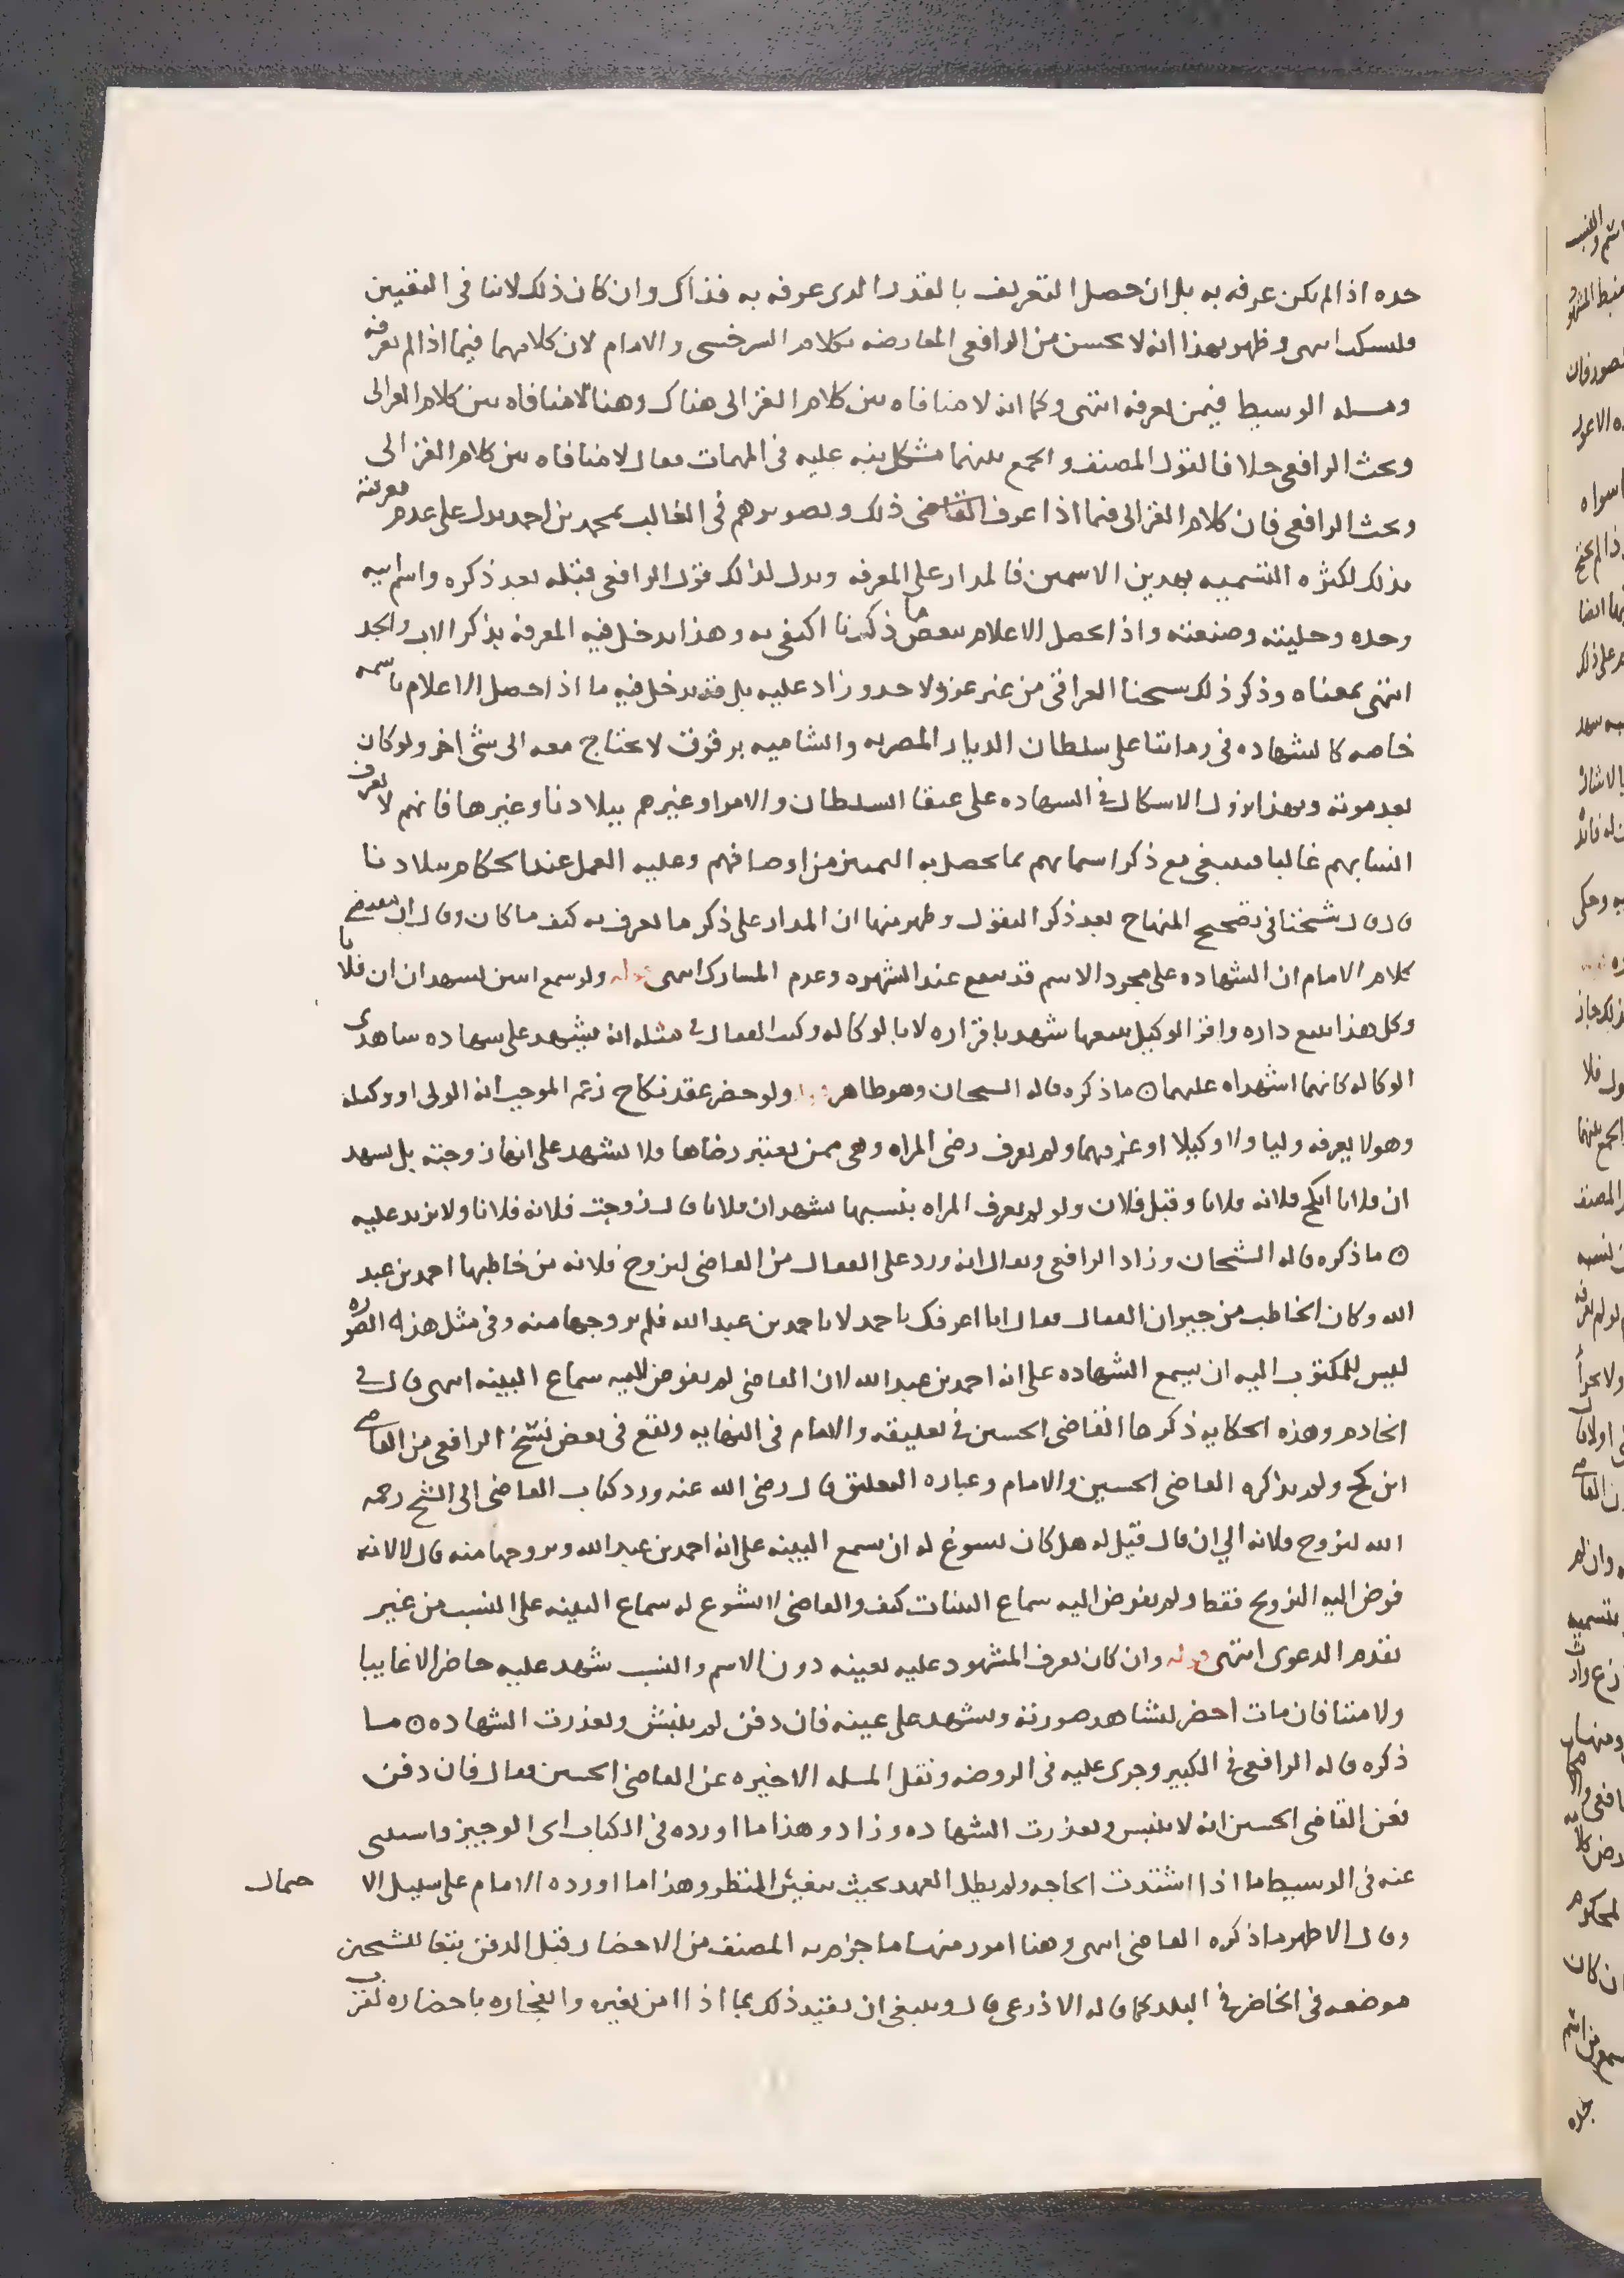 جده اذا لم يكن عرفه به بل ان حصل التعريف بالقدر الذي عرفه به فذاك وان كان ذلك لاثنا في التقيين
فليسكت انتهى وظهر بهذا انه لا يحسن من الرافعي المعارضه بكلام السرخسي والامام لان كلامهما فيما اذا لم يعرفه
ومسله الوسيط فيمن يعرفه انتهى وكما انه لا منافاه بين كلام الغزالي هناك وهنا لا منافاه بين كلام الغزالي
وبحث الرافعي خلافا لقول المصنف والجمع بينهما مشكل نبه عليه في المهمات فقال لا منافاه بين كلام الغزالي
وبحث الرافعي فان كلام الغزالي فيما اذا عرف القاضي ذلك وتصويرهم في الغالب بمحمد بن احمد يدل على عدم معرفته
بذلك لكثره التسميه بهذين الاسمين فالمدار على المعرفه ويدل لذلك قول الرافعي قبله بعد ذكره واسم ابيه
وجده وحليته وصنعته واذا حصل الاعلام ببعض ما ذكرنا اكتفى به وهذا يدخل فيه المعرفه بذكر الاب والجد
انتهى بمعناه وذكر ذلك شيخنا العراقي من غير عزو لاحد وزاد عليه بل قد يدخل فيه ما اذا حصل الاعلام باسمه
خاصه كالشهاده في زماننا على سلطان الديار المصريه والشاميه برقوق لا يحتاج معه الى شي اخر ولو كان
بعد موته وبهذا يزول الاشكال في الشهاده على عتقا السلطان والامرا وغيرهم ببلادنا وغيرها فانهم لا يعرف
انسابهم غالبا فيكتفي مع ذكر اسمايهم بما يحصل به التميز من اوصافهم وعليه العمل عند الحكام ببلادنا
قال قال شيخنا في تصحيح المنهاج بعد ذكر النقول وظهر منها ان المدار على ذكر ما يعرف به كيف ما كان وقال ان مقتضى
كلام الامام ان الشهاده على مجرد الاسم قد تنفع عند الشهره وعدم المشارك انتهى قوله ولو سمع اثنين يشهدان ان فلانا
وكل هذا ببيع داره واقر الوكيل ببيعها شهد باقراره لا بالوكاله وكتب القفال في مثله انه يشهد على شهاده شاهدي
الوكاله كانهما اشهداه عليهما ۞ ما ذكره قاله الشيخان وهو ظاهر قوله ولو حضر عقد نكاح زعم الموجب انه الولي او وكيله
وهو لا يعرفه وليا ولا وكيلا او عرفهما ولم يعرف رضى المراه وهي ممن يعتبر رضاها فلا يشهد على انها زوجته بل يشهد
ان فلانا انكح فلانه فلانا وقبل فلان ولو لم يعرف المراه بنسبها شهد ان فلانا قال زوجت فلانه فلانا ولا يزيد عليه
۞ ما ذكره قاله الشيخان وزاد الرافعي ويقال انه ورد على القفال من القاضي ليزوج فلانه من خاطبها احمد بن عبد
الله وكان الخاطب من جيران القفال فقال انا اعرفك باحمد لا باحمد بن عبد الله فلم يزوجها منه وفي مثل هذه الصوره
ليس للمكتوب اليه ان يسمع الشهاده على انه احمد بن عبد الله لان القاضي لم يفوض اليه سماع البينه انتهى قال في
الخادم وهذه الحكايه ذكرها القاضي الحسين في تعليقه والامام في النهايه وتقع في بعض نسخ الرافعي من القاضي
ابن كج ولم يذكره القاضي الحسين والامام وعباره التعليق قال رضي الله عنه ورد كتاب القاضي الى الشيخ رحمه
الله ليزوج فلانه الي ان قال قيل له هل كان يسوغ له ان يسمع البينه على انه احمد بن عبد الله ويزوجها منه قال لا لانه
فوض اليه التزويج فقط ولم يفوض اليه سماع البينات كيف والقاضي لا يسوغ له سماع البينه على النسب من غير
تقدم الدعوى انتهى قوله وان كان يعرف المشهود عليه بعينه دون الاسم والنسب شهد عليه حاضرا لا غايبا
ولا ميتا فان مات احضر ليشاهد صورته ويشهد على عينه فان دفن لم ينبش وتعذرت الشهاده ۞ ما
ذكره قاله الرافعي في الكبير وجرى عليه في الروضه ونقل المسله الاخيره عن القاضي الحسين فقال فان دفن
فعن القاضي الحسين انه لا ينبش وتعذرت الشهاده وزاد وهذا ما اورده في الكتاب اى الوجيز واستثنى
عنه في الوسيط ما اذا اشتدت الحاجه ولم يطل العهد بحيث يتغير المنظر وهذا ما اورده الامام على سبيل الا حتمال
وقال الاظهر ما ذكره القاضي انتهى وهنا امور منها ما جزم به المصنف من الاحضار قبل الدفن تبعا للشيخين
موضعه في الحاضر في البلد كما قاله الاذرعي قال وينبغي ان يقيد ذلك بما اذا امن تغيره وانفجاره باحضاره لقرب